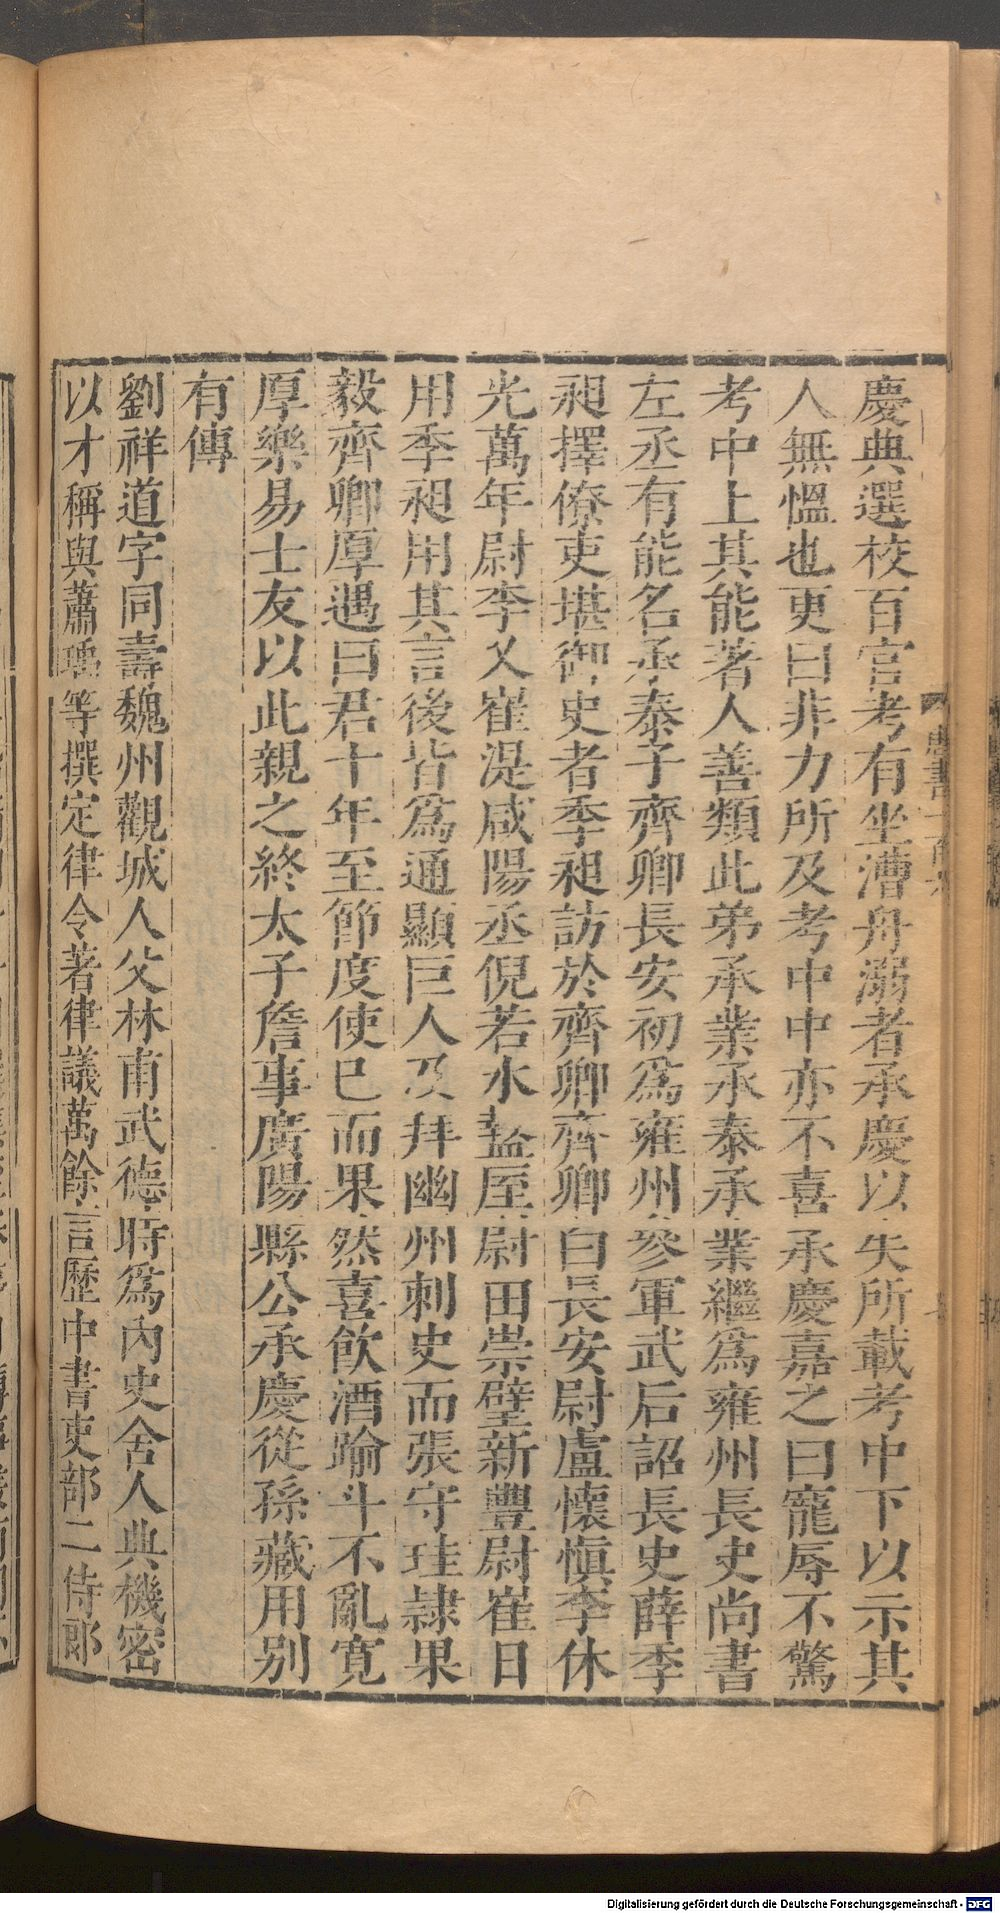 慶典選校百官考有坐漕舟溺者承慶以失所載考中下以示其
人無慍也更曰非力所及考中中亦不喜承慶嘉之曰寵辱不驚
考中上其能著人善類此弟承業承泰承業繼為雍州長史尚書
左丞有能名承泰子齊卿長安初為雍州參軍武后詔長史薛季
昶擇僚吏堪御史者季昶訪於齊卿齊卿白長安尉盧懷慎李休
光萬年尉李乂崔湜咸陽丞倪若水盩厔尉田崇璧新豐尉崔日
用季昶用其言後皆為通顯巨人及拜幽州刺史而張守珪隷果
毅齊卿厚遇曰君十年至節度使已而果然喜飲酒踰斗不亂寬
厚樂易士友以此親之終太子詹事廣陽縣公承慶從孫藏用別
有傳
劉祥道字同壽魏州觀城人父林甫武德時為內史舍人典機密
以才稱與蕭瑀等撰定律令著律議萬餘言歷中書吏部二侍郎
Digitalisierung gefördert durch die Deutsche Forschungsgemeinschaft - DFG